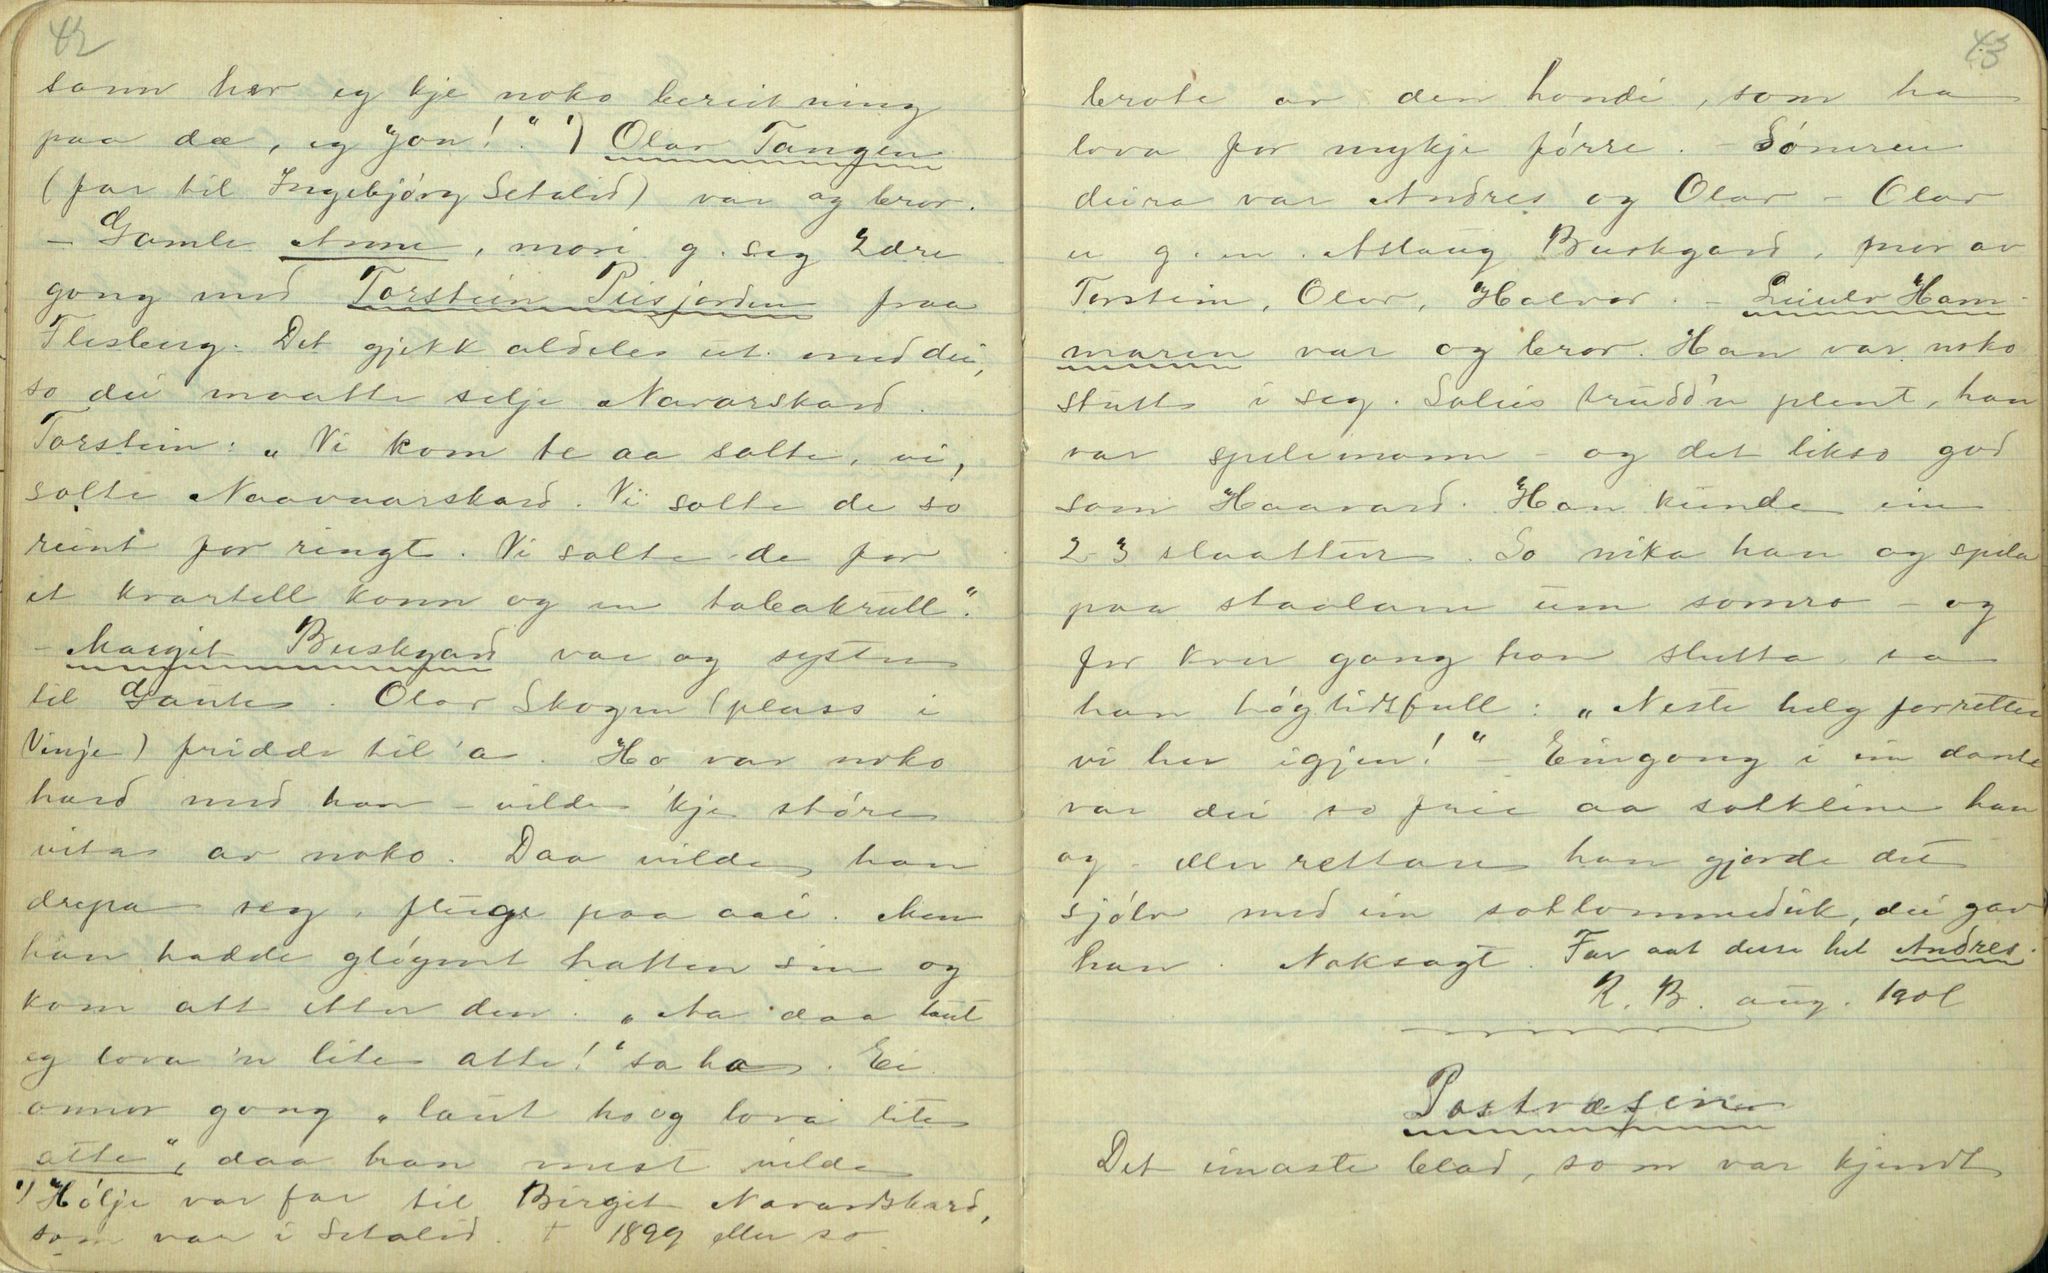 42
sonn her eg kje noko bereitning
paa dæ, eg Jon!" 1) Olav Tangen
(far til Ingebjörg Setalid) var og bror.
- Gamle Anne, mori g. seg 2dre
gong med Torstein Priisjorden fraa
Flesberg. Det gjekk aldeles ut med dei,
so dei maatte selje Navarskard.
Torstein: „Vi kom te aa salte, vi,
salte Naavaarskard. Vi salte de so
reint for ringt. Vi salte de for
et kvartell konn og en tobakrull".
- Margit Buskgard var og syster
til Gaute. Olav Skogen (plass i
Vinje) fridde til 'a. Ho var noko
hard med han - vilde 'kje störe
vita av noko. Daa vilde han
drepa seg, fluge paa aai. Men
han hadde glöymt hatten sin og
kom att etter den. „Aa daa laut
eg lova 'n lite atte!" sa ha. Ei
annor gong „laut ho og lova lite
atte", daa han mest vilde
1) Hölje var far til Birgit Navardskard,
som var i Setalid. † 1899 eller so
43
brote av den hondi, som ha
lova for mykje förre. - Söneren
deira var Andres og Olav - Olav
er g. m. Aslaug Buskgard, mor av
Torstein, Olav, Halvor. - Leiulv Ham-
maren var og bror. Han var noko
stutt i seg. Soleis trudd'n plent, han
var spelemann - og det likso god
som Haavard. Han kunde ein
2-3 slaatter. So nika han og spela
paa staalam um somro - og
for kver gong han slutta sa
han högtidsfull: „Neste helg forretter
vi her igjen!" - Eingong i ein dans
var dei so frie aa sotkline han
og. eller rettare han gjorde det
sjölv med ein sotlommeduk, dei gav
han. Noksagt. Far aat desse het Andres.
K. B. aug. 1901
Postvæsen
Det einaste blad, som var kjendt